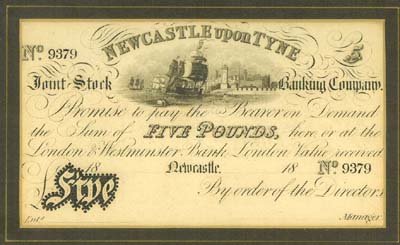 NEWCASTLE upon TYNE
No. 9379 £5
Joint Stock Banking Company.
I Promise to pay the Bearer on Demand
the Sum of FIVE POUNDS, here or at the
London & Westminster Bank London Value received
18 Newcastle. 18 No. 9379
£Five By order of the Directors
Entd. Manager.